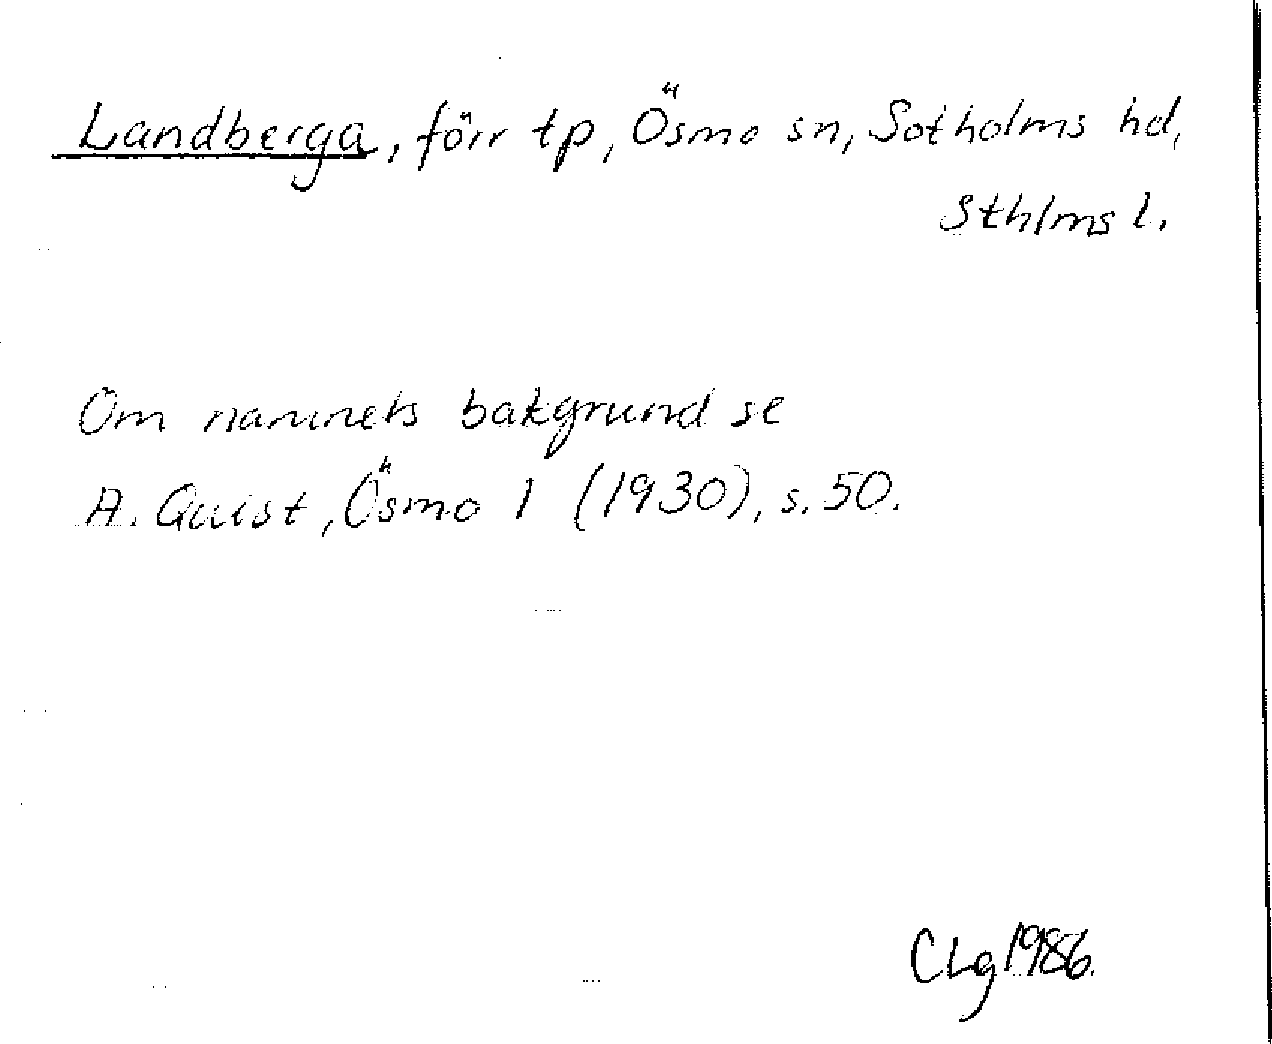 Landberga, förr tp, Ösmo sn, Sotholms hd,
Sthlms l.
Om namnets bakgrund se
A. Quist, Ösmo 1 (1930), s. 50.
CLg 1986.